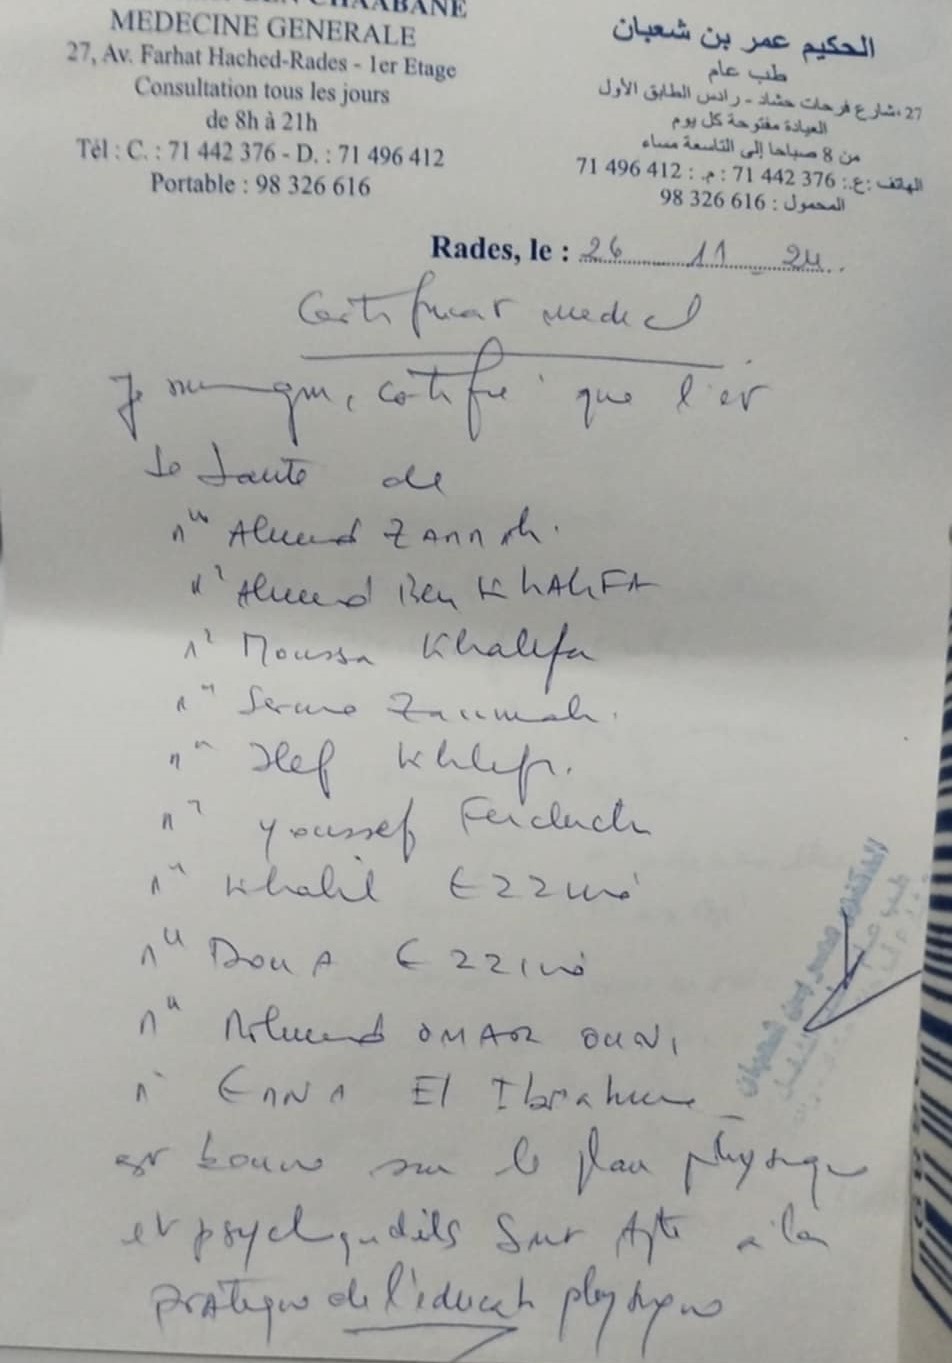 CHAABANE
MEDECINE GENERALE
27, Av. Farhat Hached-Rades - 1er Etage
Consultation tous les jours
de 8h à 21h
Tél : C. : 71 442 376 - D. : 71 496 412
Portable : 98 326 616
الحكيم عمر بن شعبان
طب عام
27، شارع فرحات حشاد - رادس الطابق الأول
العيادة مفتوحة كل يوم
من 8 صباحا إلى التاسعة مساء
الهاتف : ع. : 71 442 376 : م. : 71 496 412
المحمول : 98 326 616
Rades, le : 26 11 24
Certificat medical
Je certifie que l'
de
Ahmed
Ahmed Ben KhAliFA
Moussa Khalifa

Youssef
Khalil
DouA
Mohamed OMAR OUNI
El
est bonne sur le plan physique
et sont Apte à la
pratique de l'éducat physique